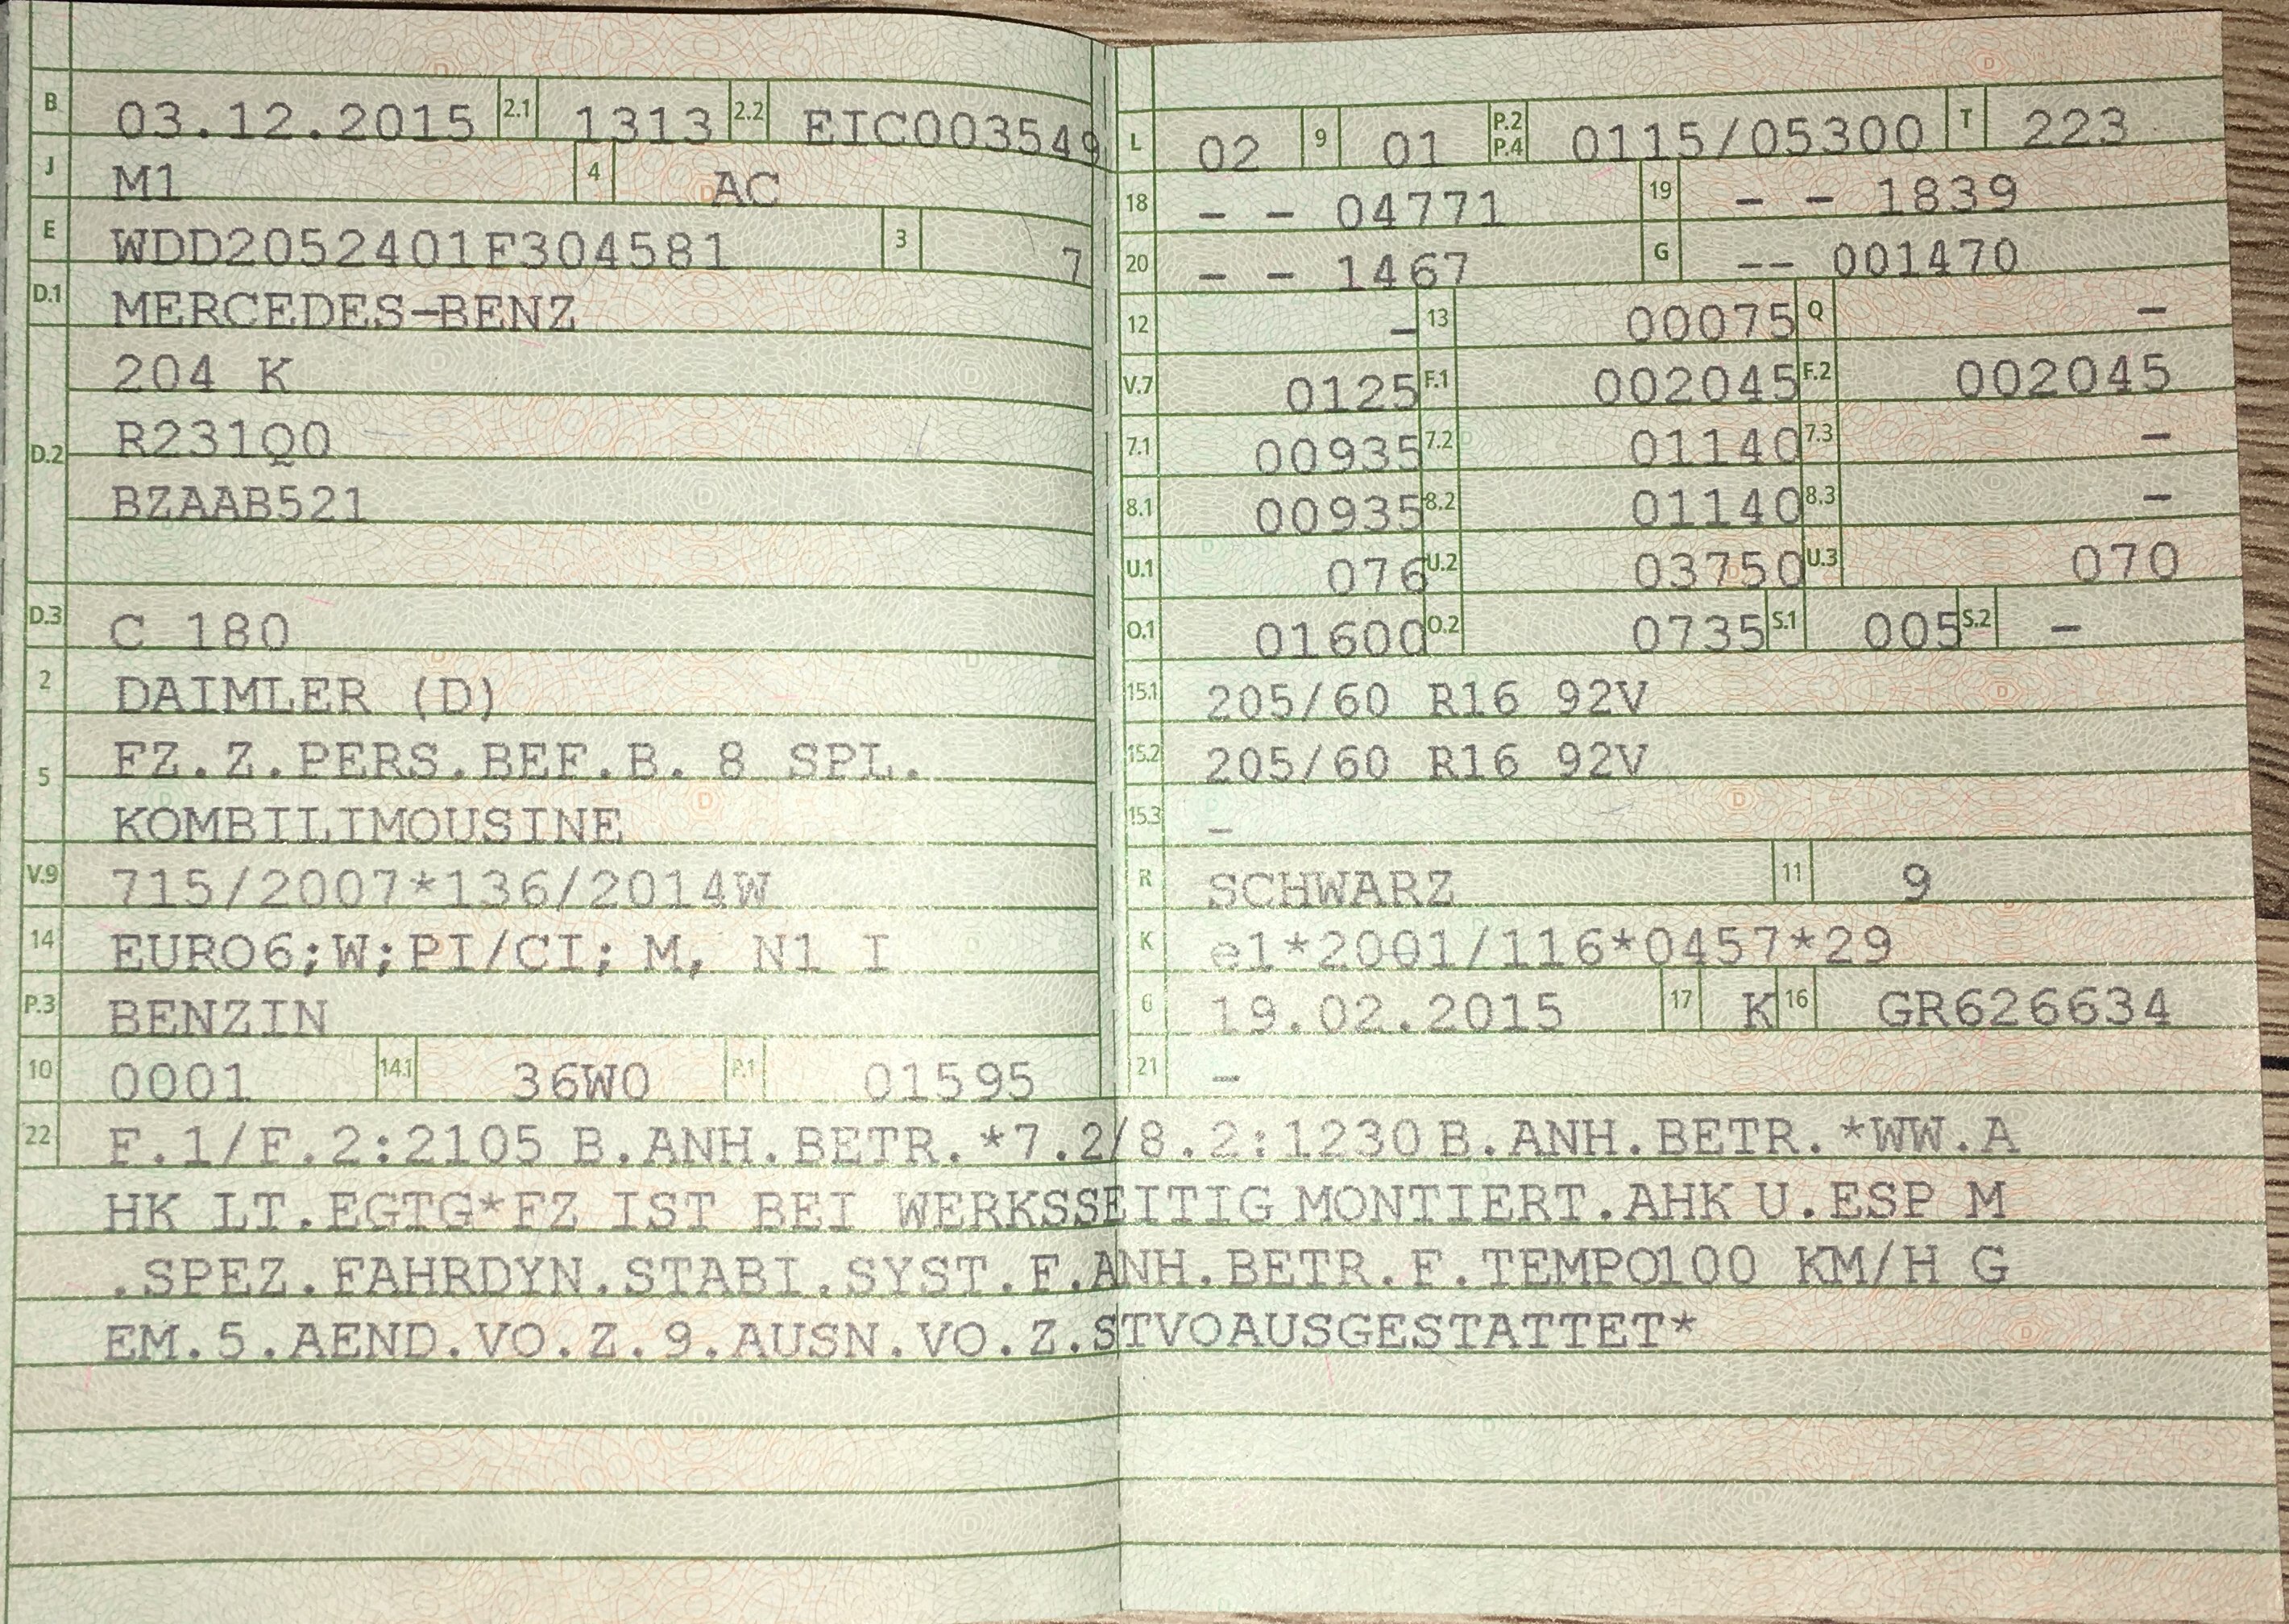 B 03.12.2015 2.1 1313 2.2 EIC003549
J M1 4 AC
E WDD2052401F304581 3 7
D.1 MERCEDES-BENZ
204 K
D.2 R231Q0
BZAAB521
D.3 C 180
2 DAIMLER (D)
5 FZ.Z.PERS.BEF.B. 8 SPL.
KOMBILIMOUSINE
V.9 715/2007*136/2014W
14 EURO6;W;PI/CI; M, N1 I
P.3 BENZIN
10 0001 14.1 36W0 P.1 01595
L 02 9 01 P.2 P.4 0115/05300 T 223
18 - - 04771 19 - - 1839
20 - - 1467 G -- 001470
12 - 13 00075 Q -
V.7 0125 F.1 002045 F.2 002045
7.1 00935 7.2 01140 7.3 -
8.1 00935 8.2 01140 8.3 -
U.1 076 U.2 03750 U.3 070
O.1 01600 O.2 0735 S.1 005 S.2 -
15.1 205/60 R16 92V
15.2 205/60 R16 92V
15.3 -
R SCHWARZ 11 9
K e1*2001/116*0457*29
6 19.02.2015 17 K 16 GR626634
21 -
22 F.1/F.2:2105 B.ANH.BETR.*7.2/8.2:1230 B.ANH.BETR.*WW.A
HK LT.EGTG*FZ IST BEI WERKSSEITIG MONTIERT.AHK U.ESP M
.SPEZ.FAHRDYN.STABI.SYST.F.ANH.BETR.F.TEMPO100 KM/H G
EM.5.AEND.VO.Z.9.AUSN.VO.Z.STVOAUSGESTATTET*